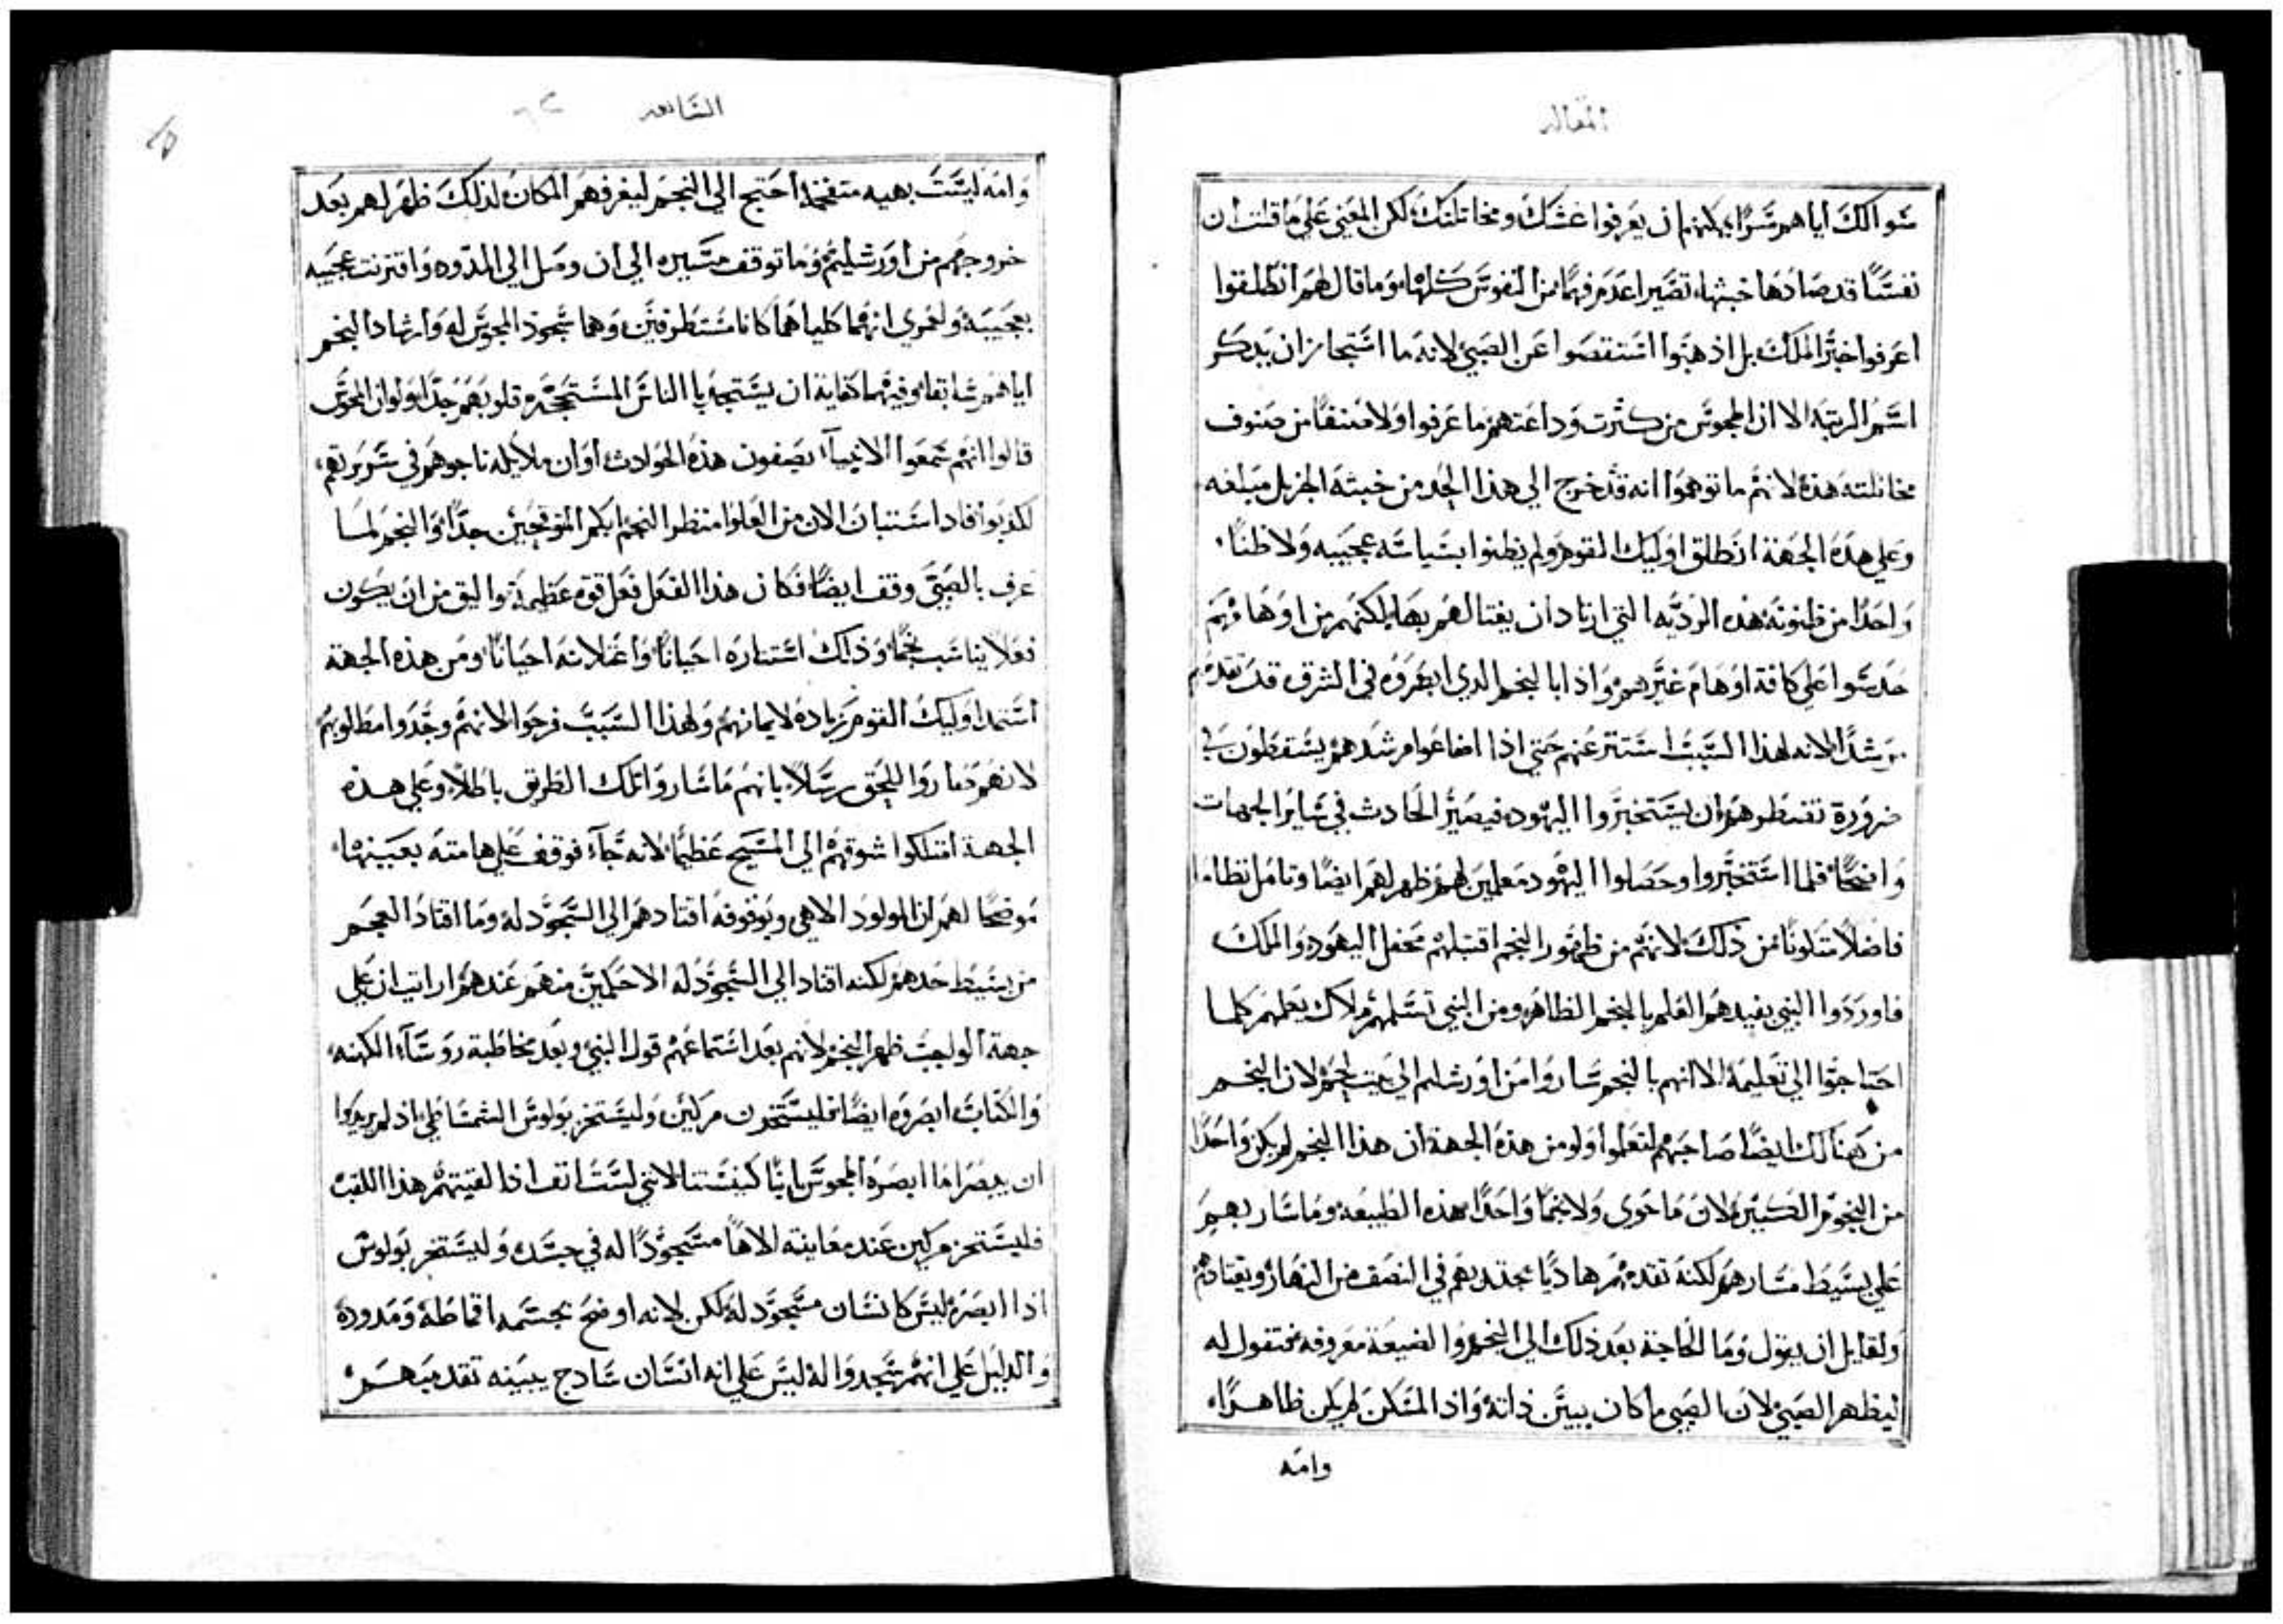 المقاله
سوالك اياهم سرًا يمكنهم ان يعرفوا غشك ومخاتلتك لكن المعني علي ما قلت ان
نفسًا قد صادها خبثها تصير اعدم فهمًا من النفوس كلها وما قال لهم انطلقوا
اعرفوا خبر الملك بل اذهبوا استقصوا عن الصبي لانه ما استجاز ان يدكر
اسم الرتبه الا ان المجوس من كثرت وداعتهم ما عرفوا ولا صنفًا من صنوف
مخاتلته هذه لانهم ما توهموا انه قد خرج الي هذا الحد من خبثه الجزيل مبلغه
وعلي هذه الجهة انطلق اوليك القوم ولم يظنوا بسياسه عجيبه ولا ظنًا
واحدًا من ظنونه هذه الرديه التي ارتاد ان يغتالهم بها لكنهم من اوهامهم
حدسوا علي كافة اوهام غيرهم واذا بالنجم الدي ابصروه في الشرق قد تقدمهم
مرشدًا لانه لهذا السبب استتر عنهم حتي اذا اضاعوا مرشدهم يسقطون في
ضرورة تضطرهم ان يستخبروا اليهود فيصير الحادث في ساير الجهات
واضحًا فلما استخبروا وحصلوا اليهود معلمين لهم ظهر لهم ايضًا وتامل نظاما
فاضلًا متلونًا من ذلك لانهم من ظهور النجم اقتبلهم محفل اليهود والملك
فاوردوا النبي يفيدهم العلم بالنجم الظاهر ومن النبي تسلمهم ملاك يعلمهم كلما
احتاجوا الي تعليمه الا انهم بالنجم ساروا من اورشليم الي بيت لحم لان النجم
من هنالك ايضًا صاحبهم لتعلموا ولو من هذه الجهة ان هذا النجم لم يكن واحدًا
من النجوم الكبيره لان ما حوى ولا نجمًا واحدًا هذه الطبيعه وما سار بهم
علي بسيط مسارهم لكنه تقدمهم هاديًا يجتدبهم في النصف من النهار ويقتادهم
ولقايل ان يقول وما الحاجة بعد ذلك الي النجم والضيعة معروفه فتقول له
ليظهر الصبي لان الصبي ما كان يبين ذاته واذ المسكن لم يكن ظاهرًا
وامه
السابعه
وامه ليست بهيه متفخمه احتج الي النجم ليعرفهم المكان لذلك ظهر لهم بعد
خروجهم من اورشليم وما توقف مسيره الي ان وصل الي المدود واقترنت عجيبه
بعجيبة ولعمري انهما كلياهما كانا مستطرفين وهما سجود المجوس له وارشاد النجم
اياهم سابقًا وفيهما كفاية ان يستجديا الناس المستحجره قلوبهم جدًا ولو ان المجوس
قالوا انهم سمعوا الانبيآ يصفون هذه الحوادث او ان ملايكه ناجوهم في سريرتهم
لكدبوا فاد استبان الان من العلو منظر النجم ابكم المتوقحين جدًا والنجم لما
عرف بالصبي وقف ايضًا فكان هذا الفعل فعل قوه عظيمة واليق من ان يكون
فعلًا يناسب نجمًا وذلك استتاره احيانًا واعتلانه احيانًا ومن هذه الجهة
استمد اوليك القوم زيادة لايمانهم ولهذا السبب فرحوا لانهم وجدوا مطلوبهم
لانهم صاروا للحق رسلًا بانهم ما ساروا تلك الطريق باطلًا وعلي هذه
الجهة امتلكوا شوقهم الي المسيح عظيمًا لانه جآء فوقف علي هامته بعينها
موضحًا لهم ان المولود الاهي وبوقوفه اقتادهم الي السجود له وما اقتاد العجم
من بسيط حدهم لكنه اقتاد الي السجود له الاحكمين منهم عندهم ارايت ان علي
جهة الواجب ظهر النجم لانهم بعد استماعهم قول النبي وبعد مخاطبة روسآء الكهنه
والكتاب ابصروه ايضًا فليستخزن مركين وليستخز بولوس الشمشاطي اذ لم يريدوا
ان يبصرا ما ابصره المجوس ابا كنيستنا لانني لست انف اذا لقبتهم هذا اللقب
فليستخز مركين عند معاينته الاهًا مسجودًا له في جسد وليستخز بولوس
اذا ابصره ليس كانسان مسجود له لكن لانه اوضح بجسمه اقماطة ومدوده
والدليل علي انهم سجدوا له ليس علي انه انسان سادج يبينه تقدميتهم